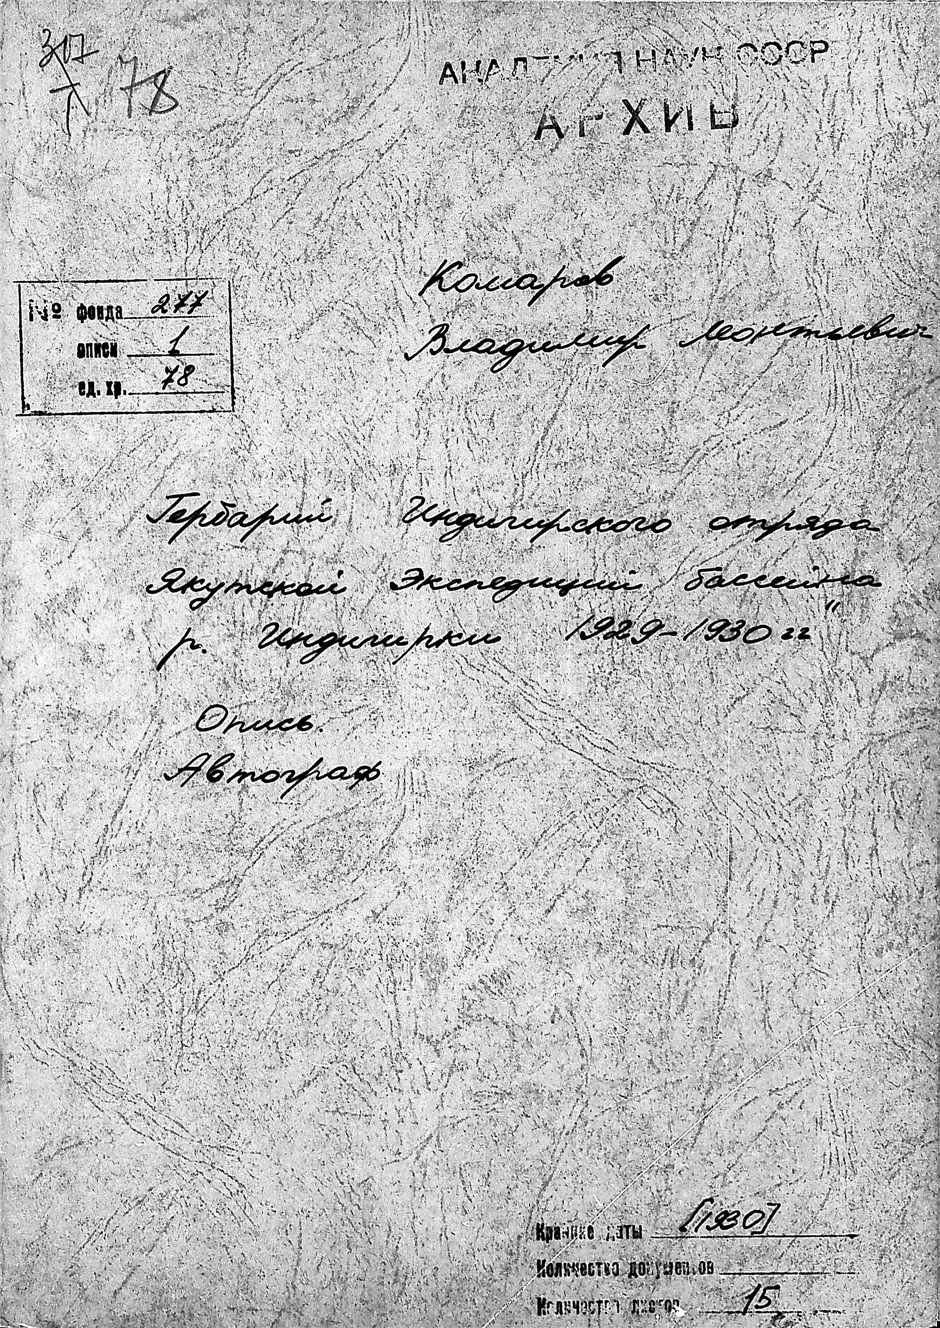 307
78
АКАДЕМИЯ НАУК СССР
АРХИВ
Комаров
Владимир Леонтьевич
№ фонда 277
описи 1
ед. хр. 78
Гербарий Индигирского отряда
Якутской Экспедиций бассейна
р. Индигирки 1929-1930 гг"
Опись.
Автограф
Крайние даты [1930]
Количество документов
Количество листов 15